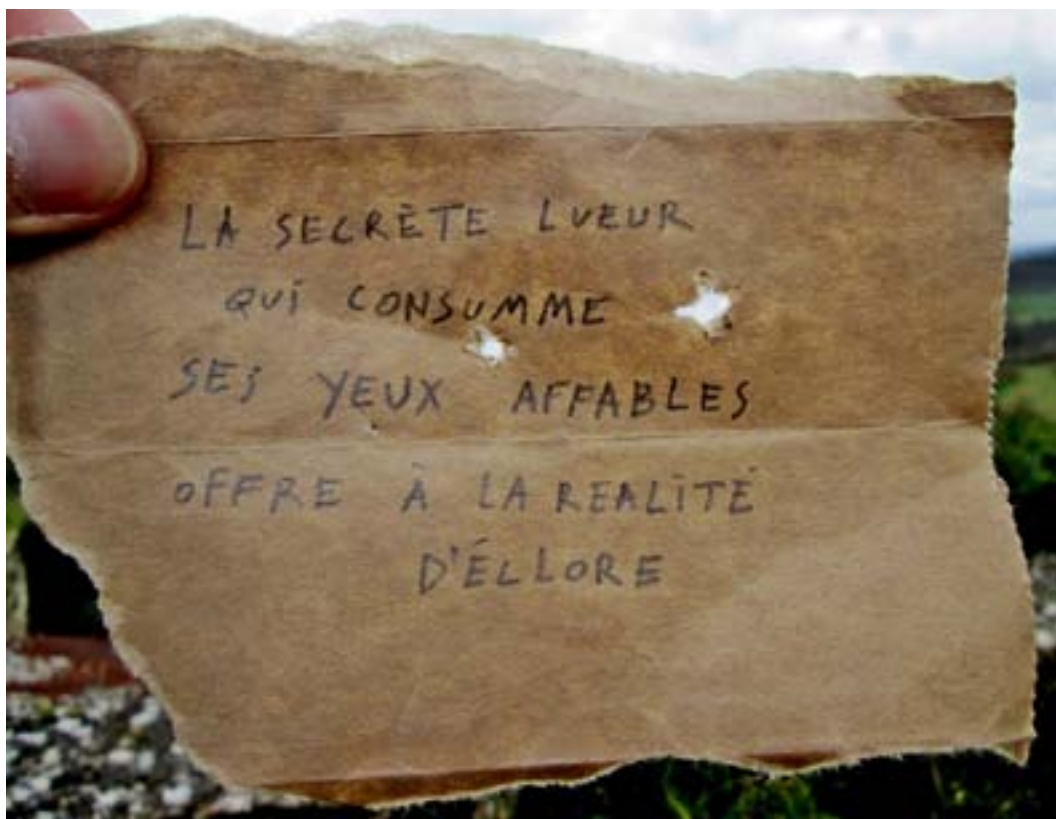 LA SECRÈTE LUEUR
QUi CONSUMME
SES YEUX AFFABLES
OFFRE À LA REALiTÉ
D'ÉCLORE